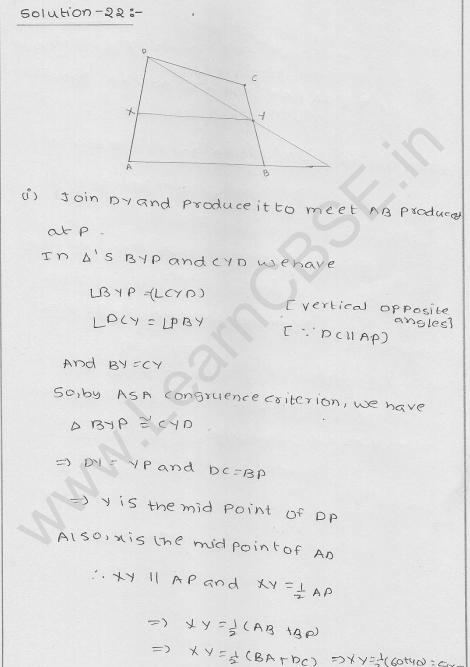 Solution-22:-
D
C
X
Y
A
B
(i) Join DY and produce it to meet AB produced
at P.
In Δ's BYP and CYD we have
∠BYP = (∠CYD) [vertical opposite
angles]
∠DCY = ∠PBY [∵ DC || AP)
And BY = CY
So, by ASA congruence criterion, we have
Δ BYP ≅ CYD
⇒ DY = YP and DC = BP
⇒ Y is the mid point of DP
Also, x is the mid point of AD
∴ XY || AP and XY = 1/2 AP
⇒ XY = 1/2 (AB + BP)
⇒ XY = 1/2 (BA + DC) ⇒ XY = 1/2 (60+40)
www.LearnCBSE.in